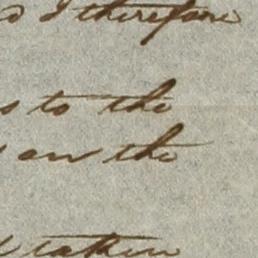 I therefore
to the
on the
taken